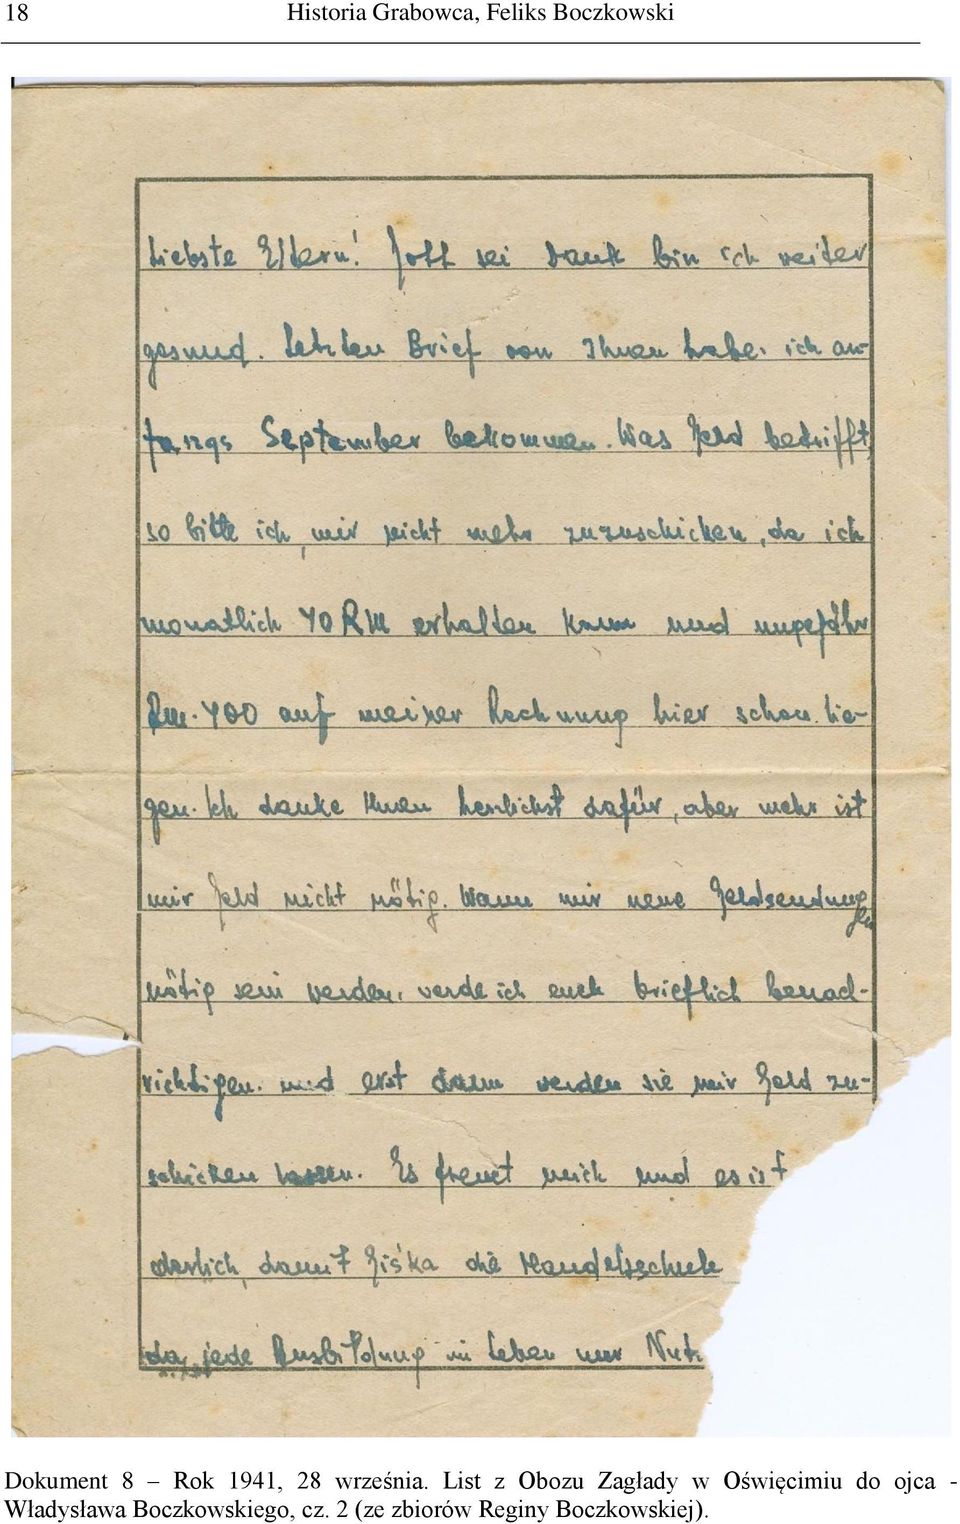 18 Historia Grabowca, Feliks Boczkowski
Liebste Eltern! Gott sei dank bin ich weiter
gesund. Letzten Brief von Ihnen habe ich an-
fangs September bekommen. Was Geld betrifft,
so bitte ich, mir nicht mehr zuzuschicken, da ich
monatlich 40 RM erhalten kann und ungefähr
RM. 400 auf meiner Rechnung hier schon lie-
gen. Ich danke Ihnen herzlichst dafür, aber mehr ist
mir Geld nicht nötig. Wann mir neue Geldsendung
en
nötig sein werden, werde ich euch brieflich benach-
richtigen und erst dann werden sie mir Geld zu-
schicken lassen. Es freut mich und es ist
damit Ziśka die Handelsschule
da jede Ausbildung im Leben nur Nutz
Dokument 8 – Rok 1941, 28 września. List z Obozu Zagłady w Oświęcimiu do ojca -
Władysława Boczkowskiego, cz. 2 (ze zbiorów Reginy Boczkowskiej).